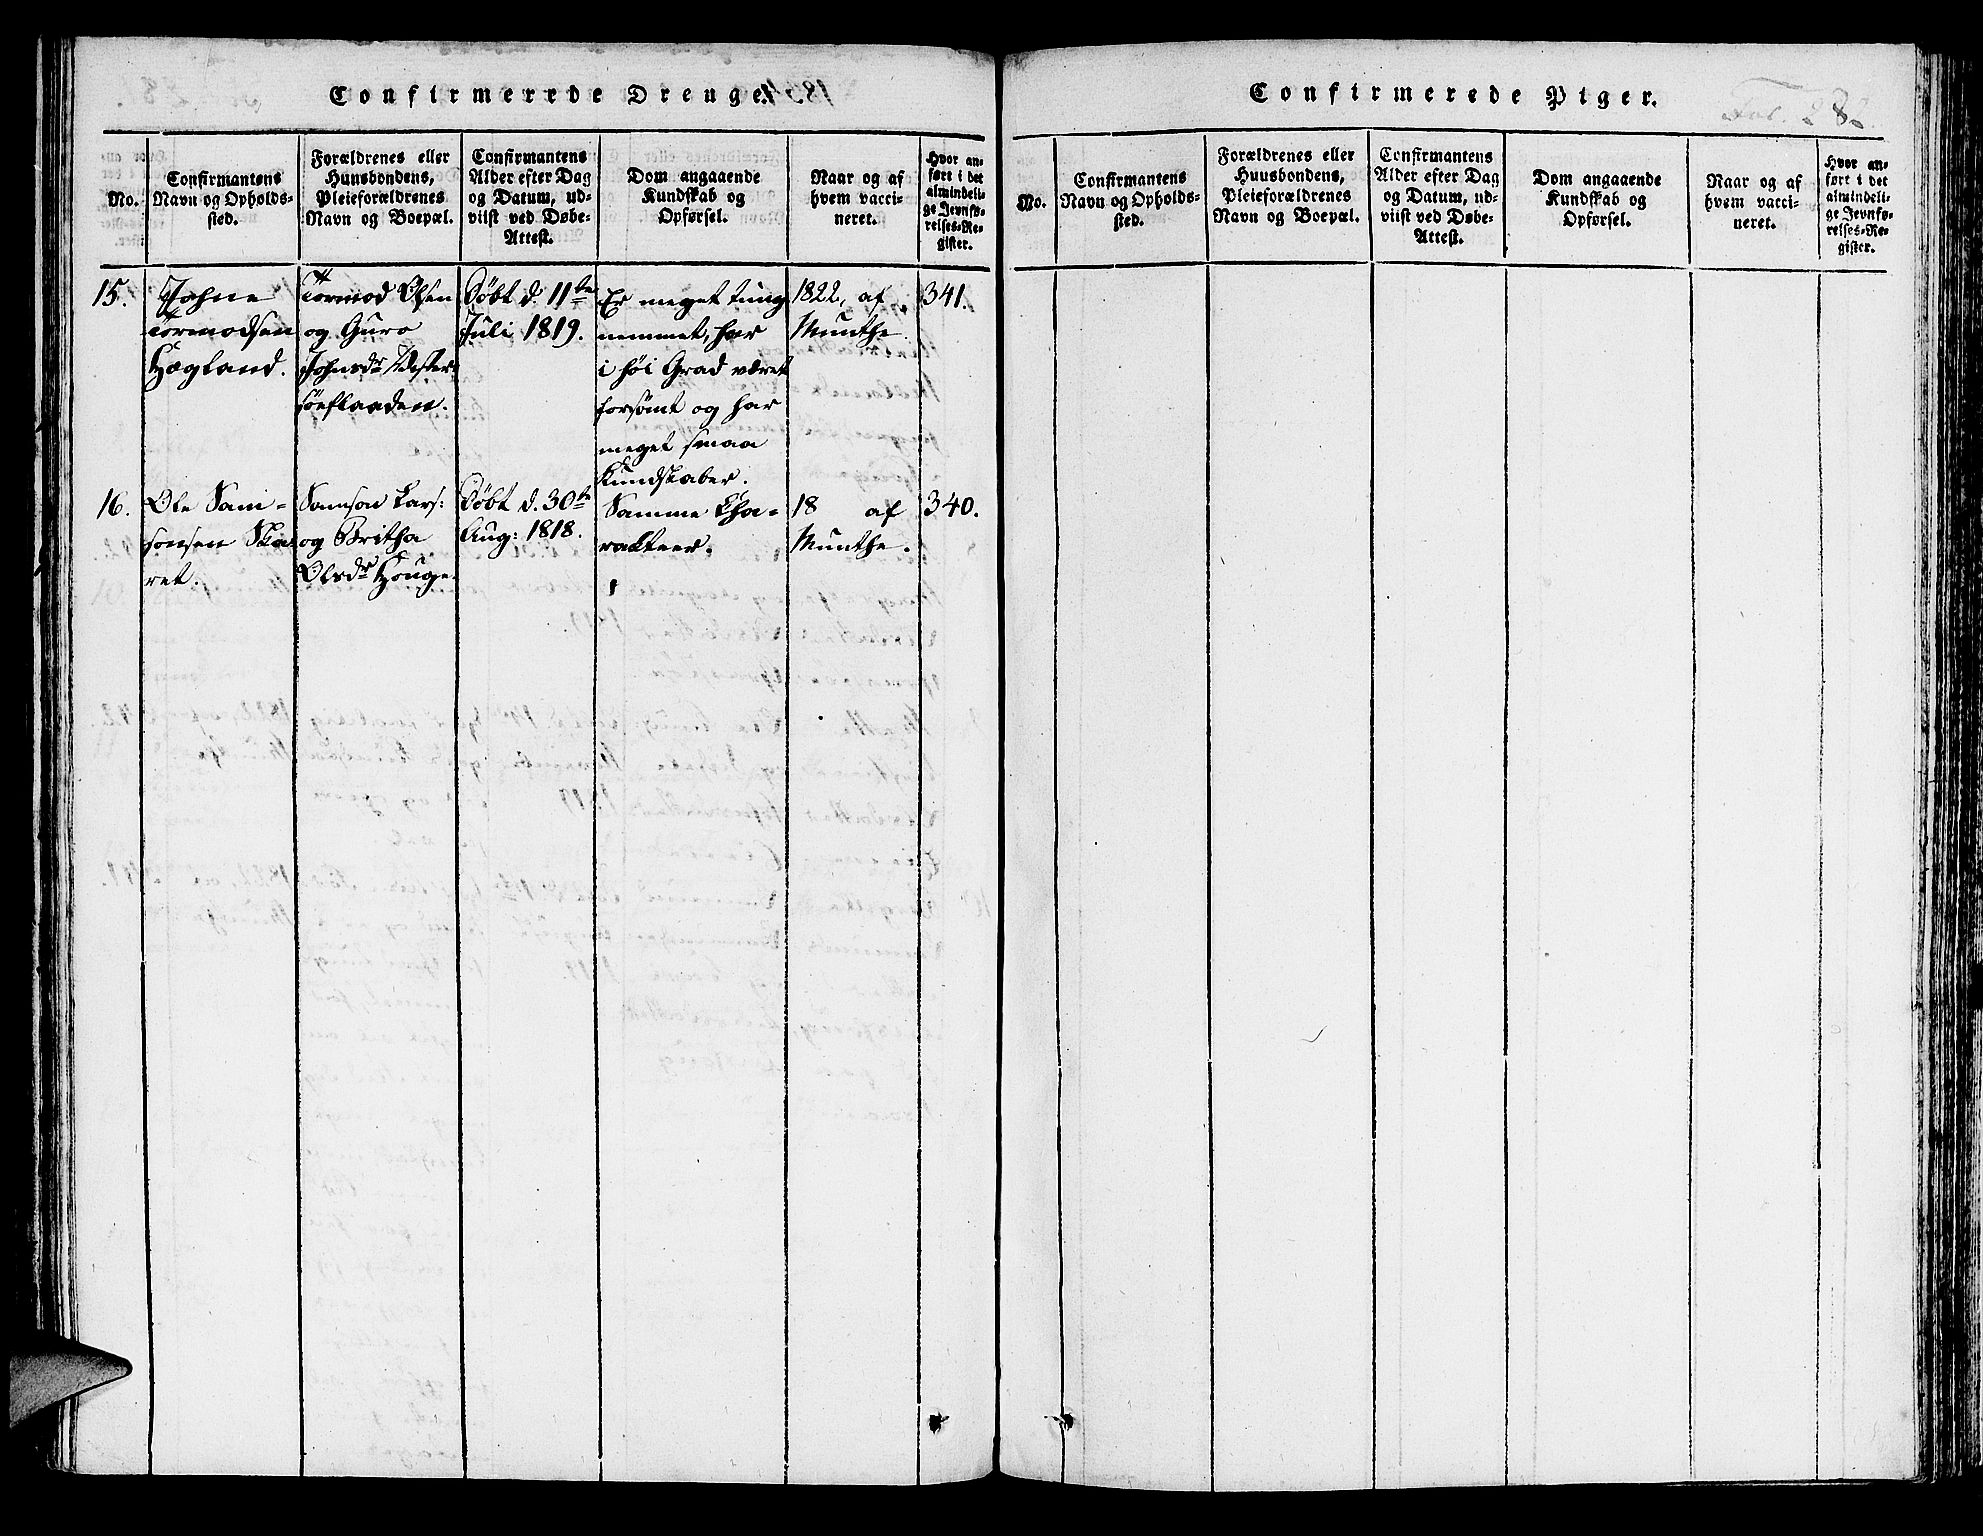 Confirmerede Drenge.
1834
No.
Confirmantens
Navn og Opholds-
sted.
Forældrenes eller
Huusbondens,
Pleieforældrenes
Navn og Boepæl.
Confirmantens
Alder efter Dag
og Datum, ud-
viist ved Døbe-
Attest.
Dom angaaende
Kundskab og
Opførsel.
Naar og af
hvem vacci-
neret.
Hvor an-
ført i det
almindeli-
ge Jevnfø-
relses-Re-
gister.
15.
Johne
Tormodsen
Hægland.
Tormod Olsen
og Guro
Johnsdr Vester-
söeflaaden.
Döbt d. 11te
Juli 1819.
Er meget tung
nemmet, har
i höi Grad været
forsömt og har
meget smaa
Kundskaber.
1822, af
Munthe.
341.
16.
Ole Sam-
sonsen Ska-
ret.
Samson Lars:
og Britha
Olsdr Houge.
Döbt d. 30te
Aug: 1818.
Samme Cha-
rakteer.
18 af
Munthe.
340.
Confirmerede Piger.
Fol. 282
No.
Confirmantens
Navn og Opholds-
sted.
Forældrenes eller
Huusbondens,
Pleieforældrenes
Navn og Boepæl.
Confirmantens
Alder efter Dag
og Datum, ud-
viist ved Døbe-
Attest.
Dom angaaende
Kundskab og
Opførsel.
Naar og af
hvem vacci-
neret.
Hvor an-
ført i det
almindeli-
ge Jevnfø-
relses-Re-
gister.